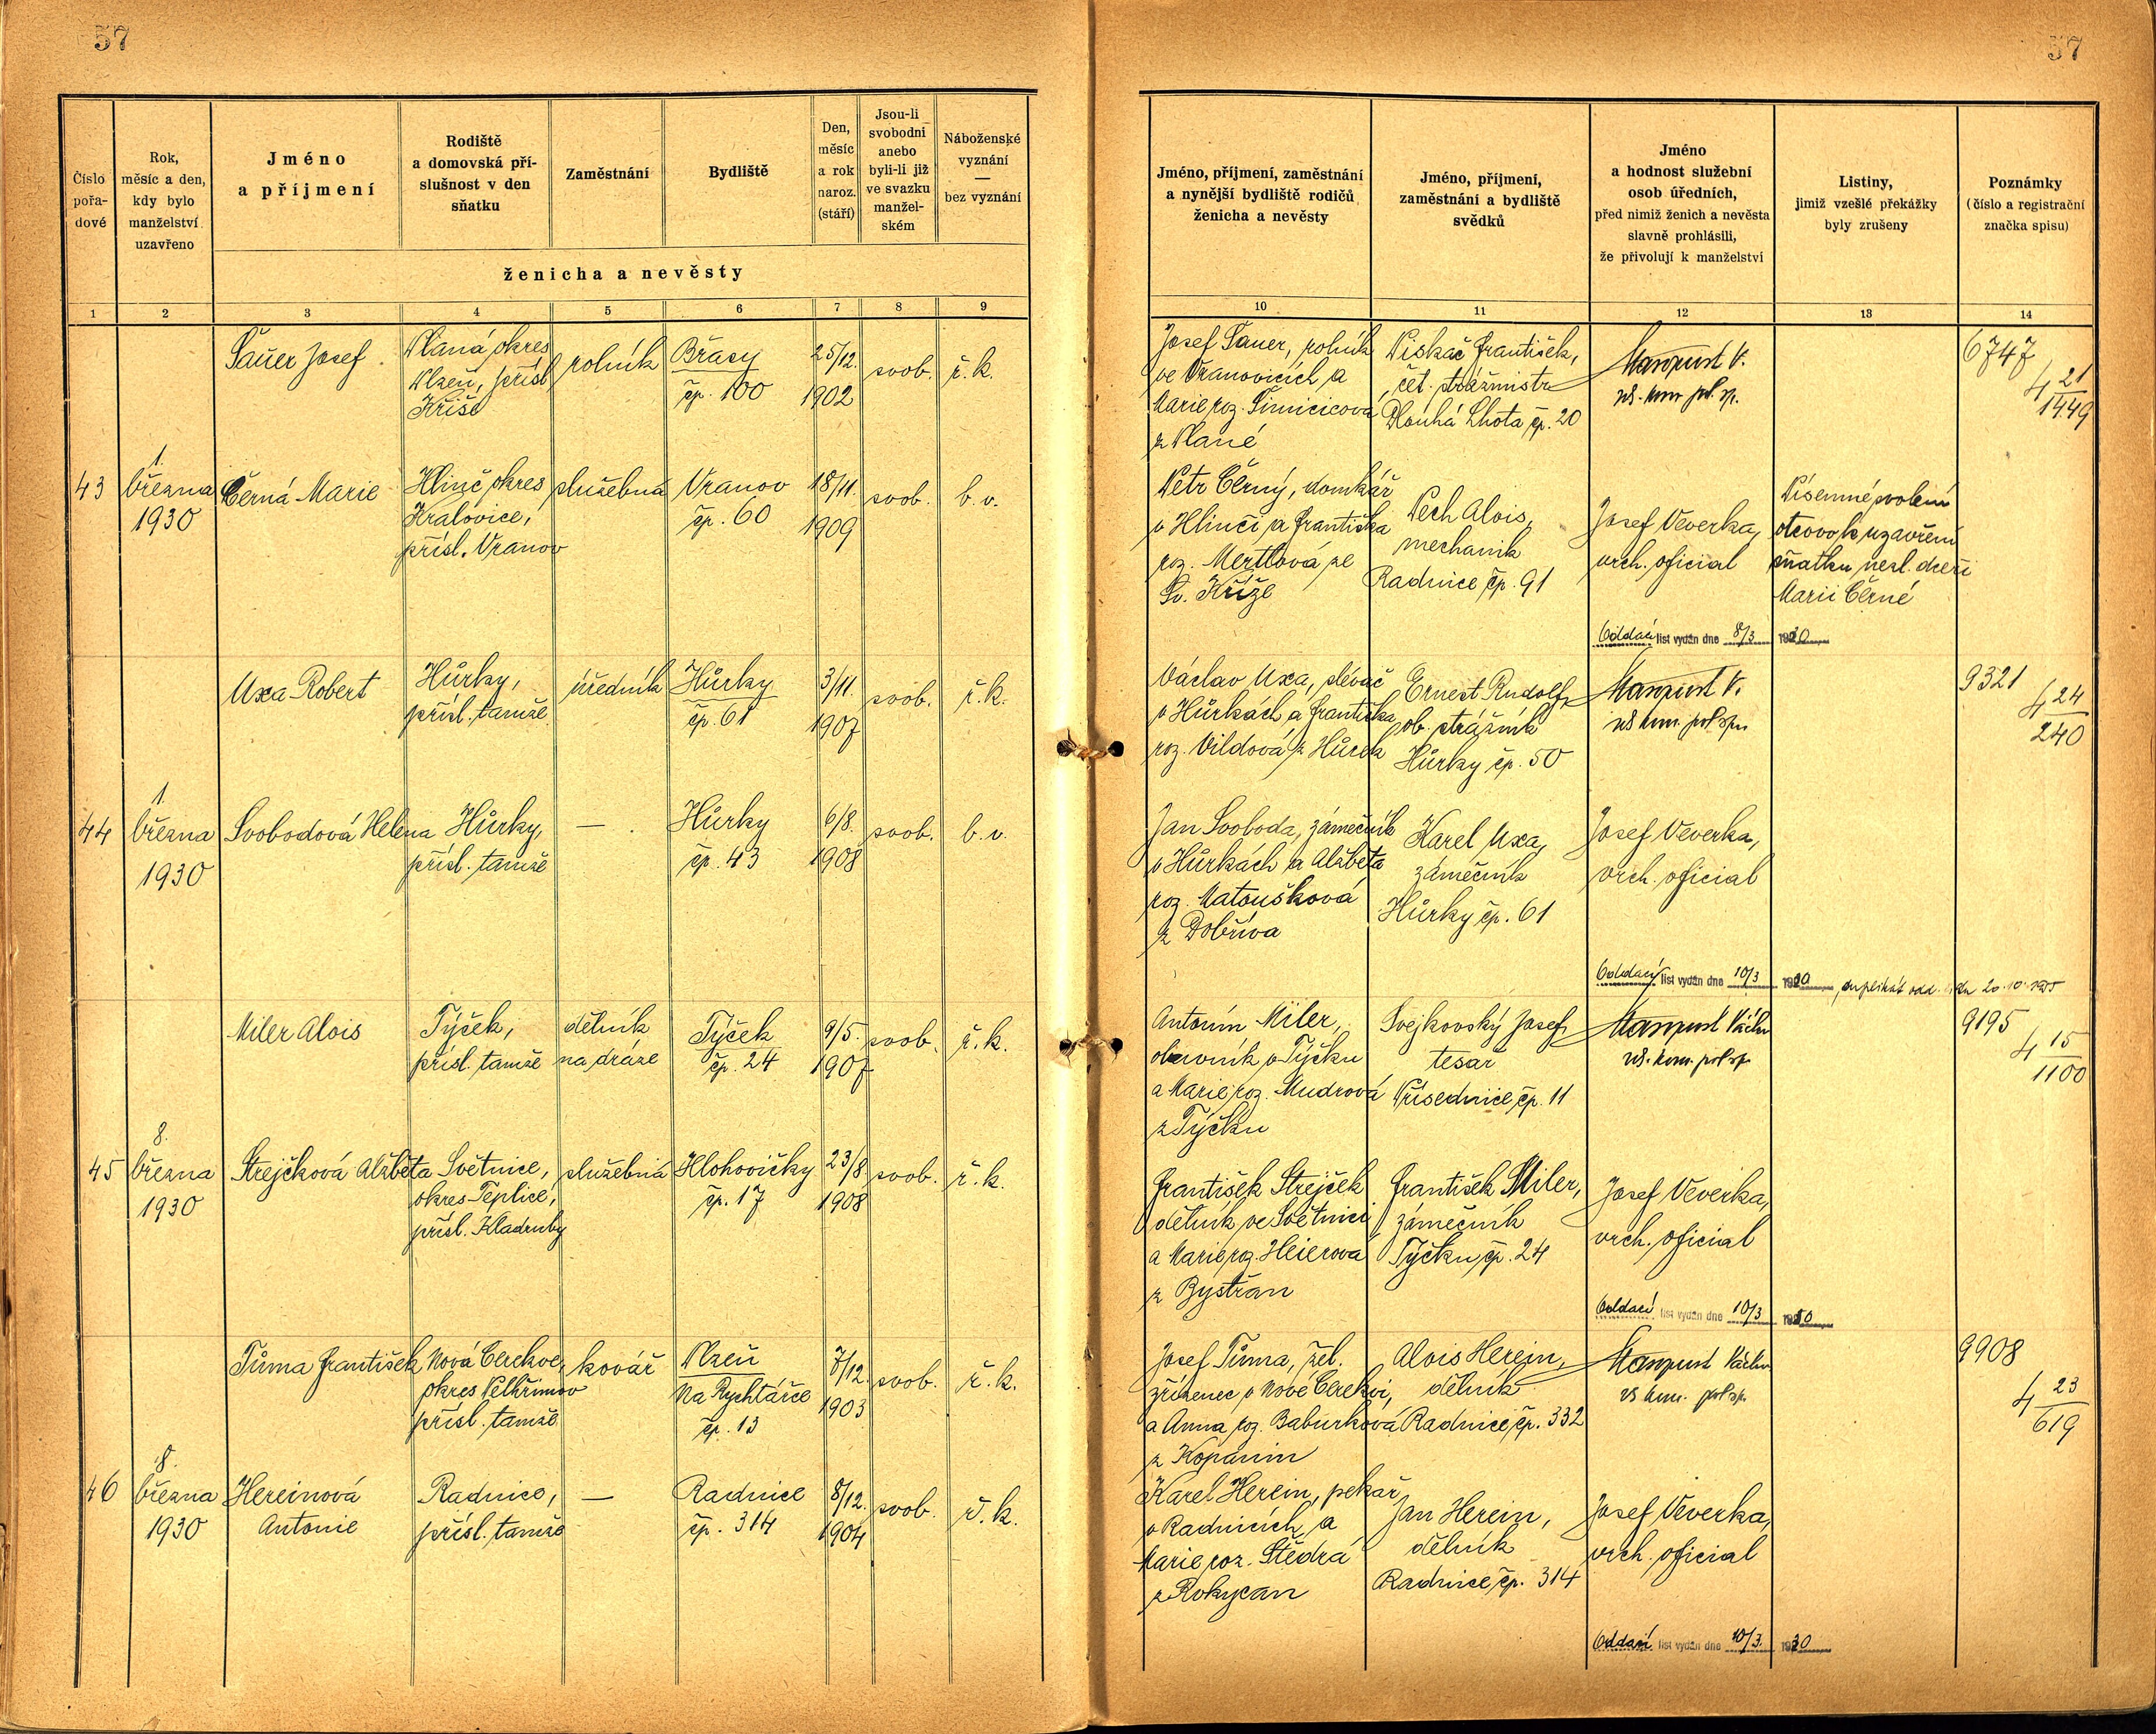 57
57
Číslo pořa- dové
Rok, měsíc a den, kdy bylo manželství uzavřeno
Jméno a příjmení
Rodiště a domovská pří- slušnost v den sňatku
Zaměstnání
Bydliště
Den, měsíc a rok naroz. (stáří)
Jsou-li svobodní anebo byli-li již ve svazku manžel- ském
Náboženské vyznání — bez vyznání
ženicha a nevěsty
Jméno, příjmení, zaměstnání a nynější bydliště rodičů ženicha a nevěsty
Jméno, příjmení, zaměstnání a bydliště svědků
Jméno a hodnost služební osob úředních, před nimiž ženich a nevěsta slavně prohlásili, že přivolují k manželství
Listiny, jimiž vzešlé překážky byly zrušeny
Poznámky (číslo a registrační značka spisu)
1 2 3 4 5 6 7 8 9 10 11 12 13 14
Šauer Josef
Planá, okres
Plzeň, přísl.
Kříše
rolník
Břasy
čp. 100
25/12.
1902
svob.
ř. k.
Josef Šauer, rolník
ve Vranovicích a
Marie roz. Šimicicová
z Plané
Piskač František,
čet. strážmistr
Dlouhá Lhota čp. 20
V.
6747
4 21/1449
43
1.
března
1930
Černá Marie
Hlinč, okres
Kralovice,
přísl. Vranov
služebná
Vranov
čp. 60
18/11.
1909
svob.
b. v.
Petr Černý, domkář
v Hlinči a Františka
roz. Mertlová ze
Sv. Kříže
Pech Alois,
mechanik
Radnice čp. 91
Josef Veverka,
vrch. oficial
Písemné svolení
otcovo k uzavření
sňatku nezl. dceři
Marii Černé
Oddací list vydán dne 8/3 1930
Uxa Robert
Hůrky,
přísl. tamže
úředník
Hůrky
čp. 61
3/11.
1907
svob.
ř. k.
Václav Uxa, slévač
v Hůrkách a Františka
roz. Vildová z Hůrek
Ernest Rudolf,
ob. strážník
Hůrky čp. 50
V.
9321
4 24/240
44
1.
března
1930
Svobodová Helena
Hůrky,
přísl. tamže
—
Hůrky
čp. 43
6/8.
1908
svob.
b. v.
Jan Svoboda, zámečník
v Hůrkách a Alžběta
roz. Matoušková
z Dobříva
Karel Uxa,
zámečník
Hůrky čp. 61
Josef Veverka,
vrch. oficial
Oddací list vydán dne 10/3 1930, duplikát odd.
Miler Alois
Týček,
přísl. tamže
dělník
na dráze
Týček
čp. 24
9/5.
1907
svob.
ř. k.
Antonín Miler,
obuvník v Týčku
a Marie roz. Mudrová
z Týčku
Svejkovský Josef,
tesař
Přísednice čp. 11
9195
4 15/1100
45
8.
března
1930
Strejčková Alžběta
Světnice,
okres Teplice,
přísl. Kladruby
služebná
Hlohovičky
čp. 17
23/8
1908
svob.
ř. k.
František Strejček
dělník ve Světnici
a Marie roz. Heierová
z Bystřan
František Miler,
zámečník
Týčku čp. 24
Josef Veverka,
vrch. oficial
Oddací list vydán dne 10/3 1930
Tůma František
Nová Cerekve,
okres Pelhřimov
přísl. tamže
kovář
Plzeň
Na Rychtářce
čp. 13
7/12.
1903
svob.
ř. k.
Josef Tůma, žel.
zřízenec v Nové Cerekvi,
a Anna roz. Baburková
z Kopanin
Alois Herein,
dělník
Radnice čp. 332
9908
4 23/619
46
8.
března
1930
Hereinová
Antonie
Radnice,
přísl. tamže
—
Radnice
čp. 314
8/12.
1904
svob.
ř. k.
Karel Herein, pekař
v Radnicích a
Marie roz. Štědrá
z Rokycan
Jan Herein,
dělník
Radnice čp. 314
Josef Veverka,
vrch. oficial
Oddací list vydán dne 10/3. 1930